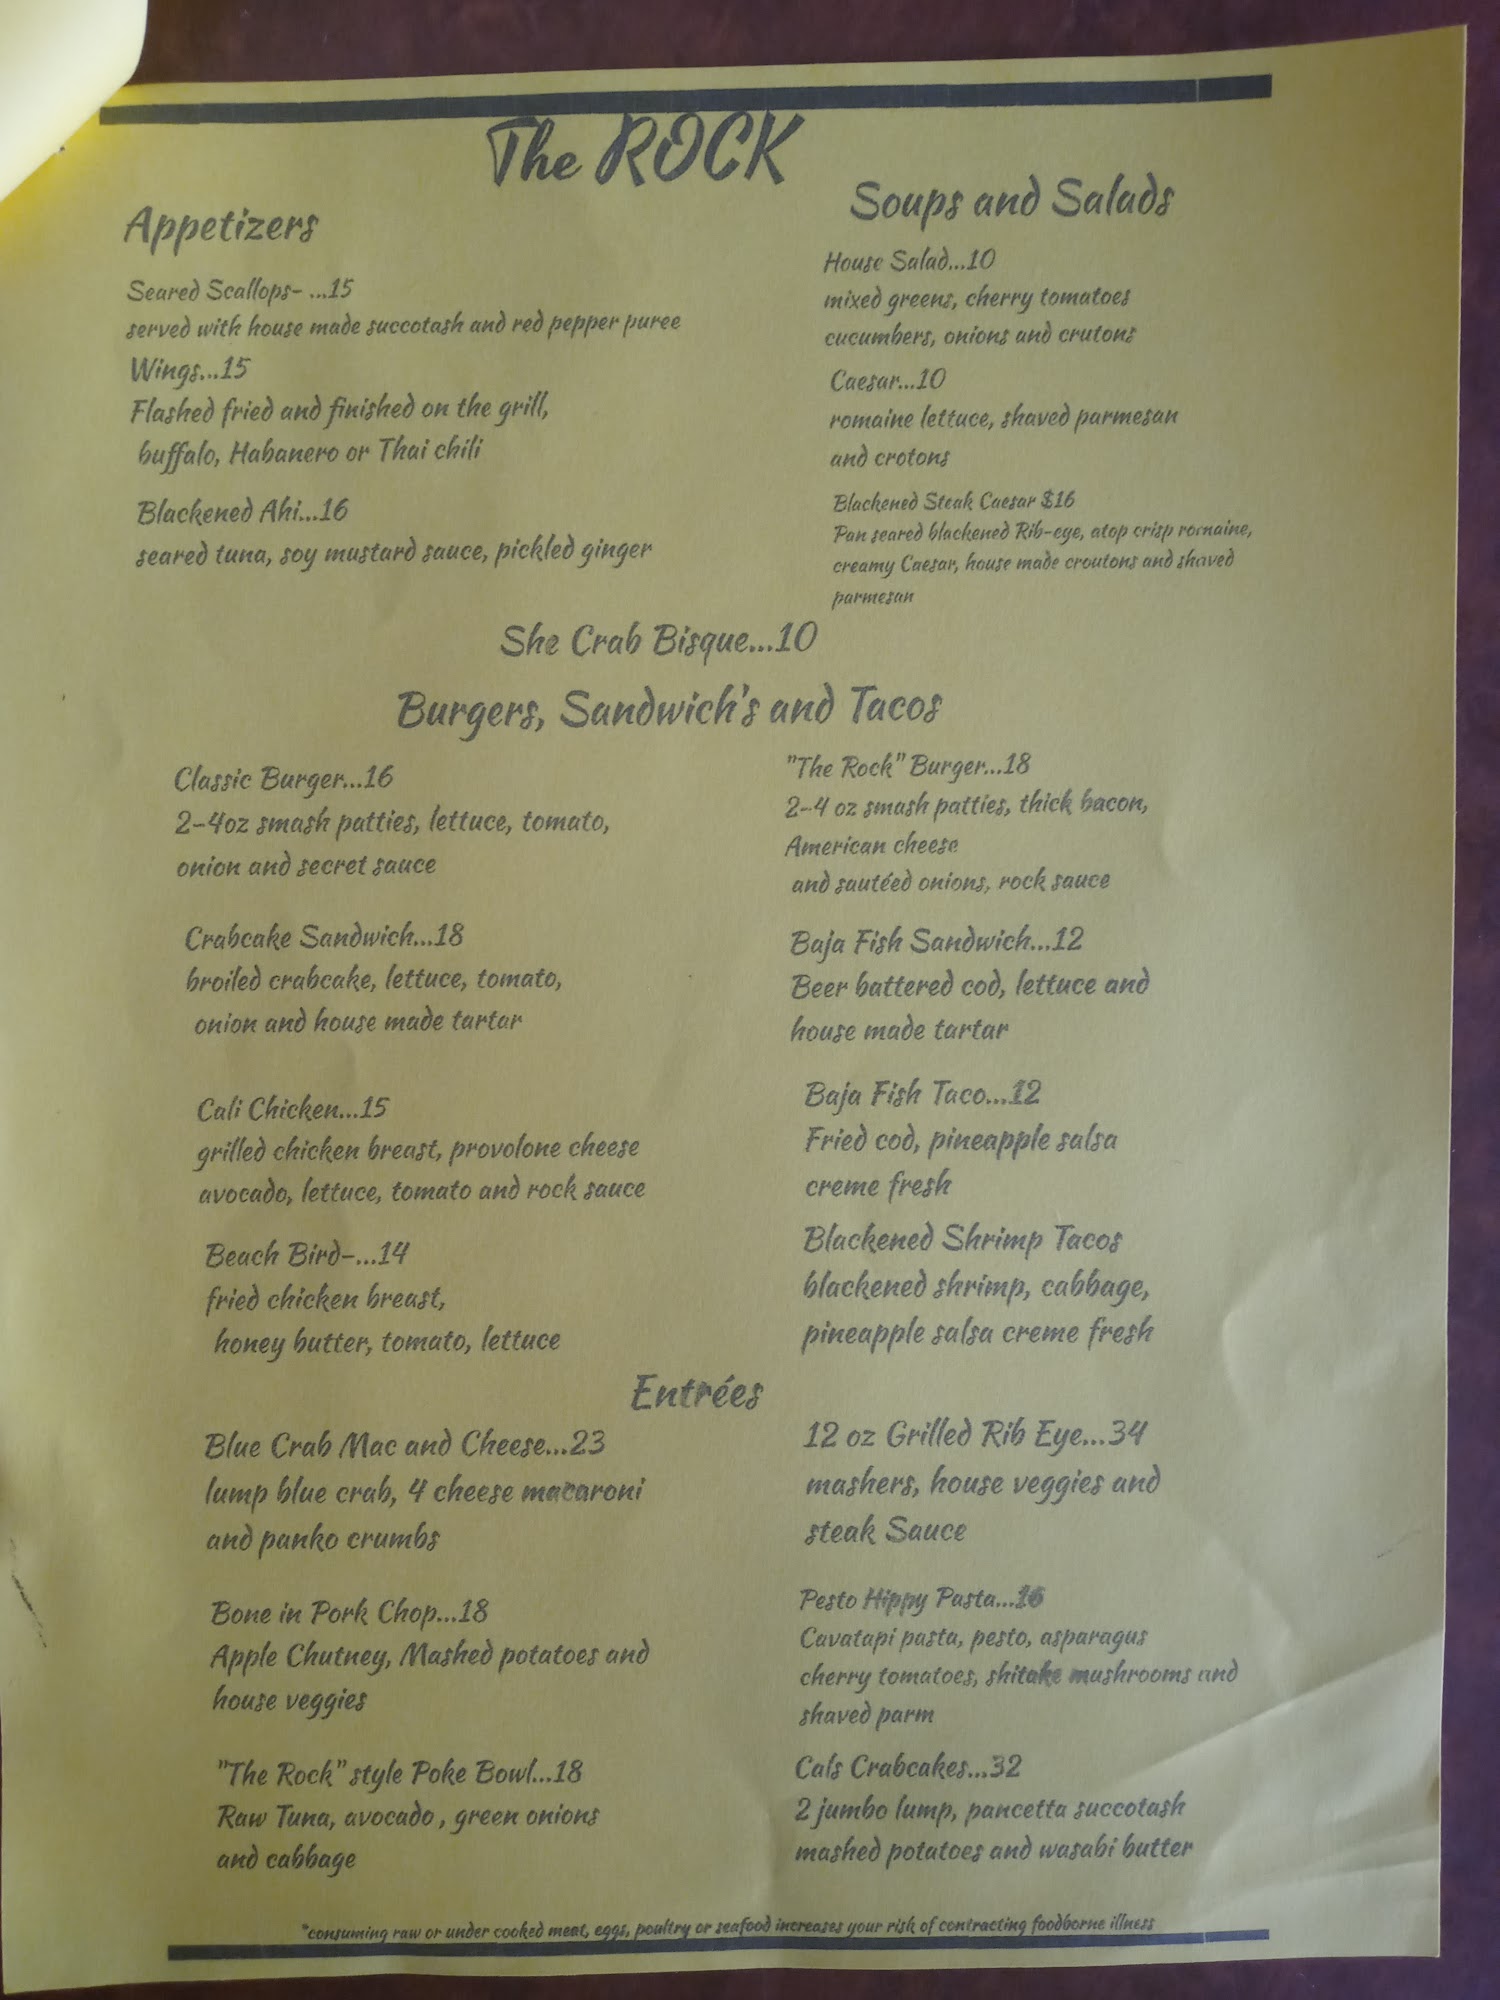 The ROCK
Appetizers
Seared Scallops- ...15
served with house made succotash and red pepper puree
Wings...15
Flashed fried and finished on the grill,
buffalo, Habanero or Thai chili
Blackened Ahi...16
seared tuna, soy mustard sauce, pickled ginger
Soups and Salads
House Salad...10
mixed greens, cherry tomatoes
cucumbers, onions and crutons
Caesar...10
romaine lettuce, shaved parmesan
and crotons
Blackened Steak Caesar $16
Pan seared blackened Rib-eye, atop crisp romaine,
creamy Caesar, house made croutons and shaved
parmesan
She Crab Bisque...10
Burgers, Sandwich's and Tacos
Classic Burger...16
2-4oz smash patties, lettuce, tomato,
onion and secret sauce
Crabcake Sandwich...18
broiled crabcake, lettuce, tomato,
onion and house made tartar
Cali Chicken...15
grilled chicken breast, provolone cheese
avocado, lettuce, tomato and rock sauce
Beach Bird-...14
fried chicken breast,
honey butter, tomato, lettuce
"The Rock" Burger...18
2-4 oz smash patties, thick bacon,
American cheese
and sautéed onions, rock sauce
Baja Fish Sandwich...12
Beer battered cod, lettuce and
house made tartar
Baja Fish Taco...12
Fried cod, pineapple salsa
creme fresh
Blackened Shrimp Tacos
blackened shrimp, cabbage,
pineapple salsa creme fresh
Entrées
Blue Crab Mac and Cheese...23
lump blue crab, 4 cheese macaroni
and panko crumbs
Bone in Pork Chop...18
Apple Chutney, Mashed potatoes and
house veggies
"The Rock" style Poke Bowl...18
Raw Tuna, avocado , green onions
and cabbage
12 oz Grilled Rib Eye...34
mashers, house veggies and
steak Sauce
Pesto Hippy Pasta...16
Cavatapi pasta, pesto, asparagus
cherry tomatoes, shitake mushrooms and
shaved parm
Cals Crabcakes...32
2 jumbo lump, pancetta succotash
mashed potatoes and wasabi butter
*consuming raw or under cooked meat, eggs, poultry or seafood increases your risk of contracting foodborne illness